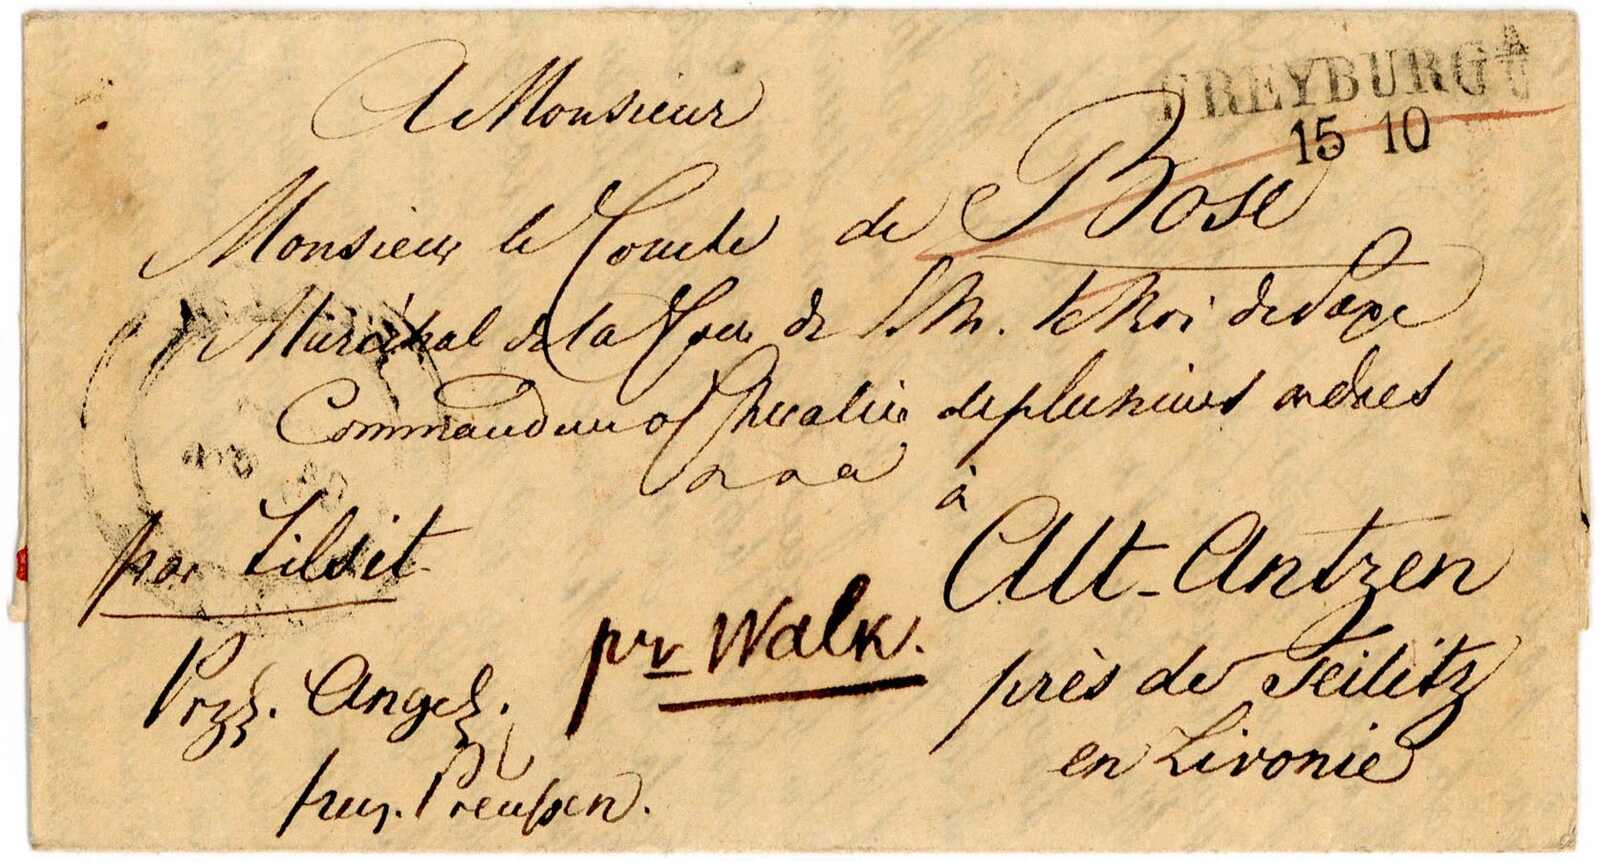 FREYBURG A/U
15 10
A Monsieur
Monsieur le Comte de Bose
Maréchal de la Cour de S. M. le Roi de Saxe
Commandeur & Chevalier de plusieurs ordres
à
par Tilsit
Alt-Antzen
pr Walk.
près de Teilitz
en Livonie
Preussen.